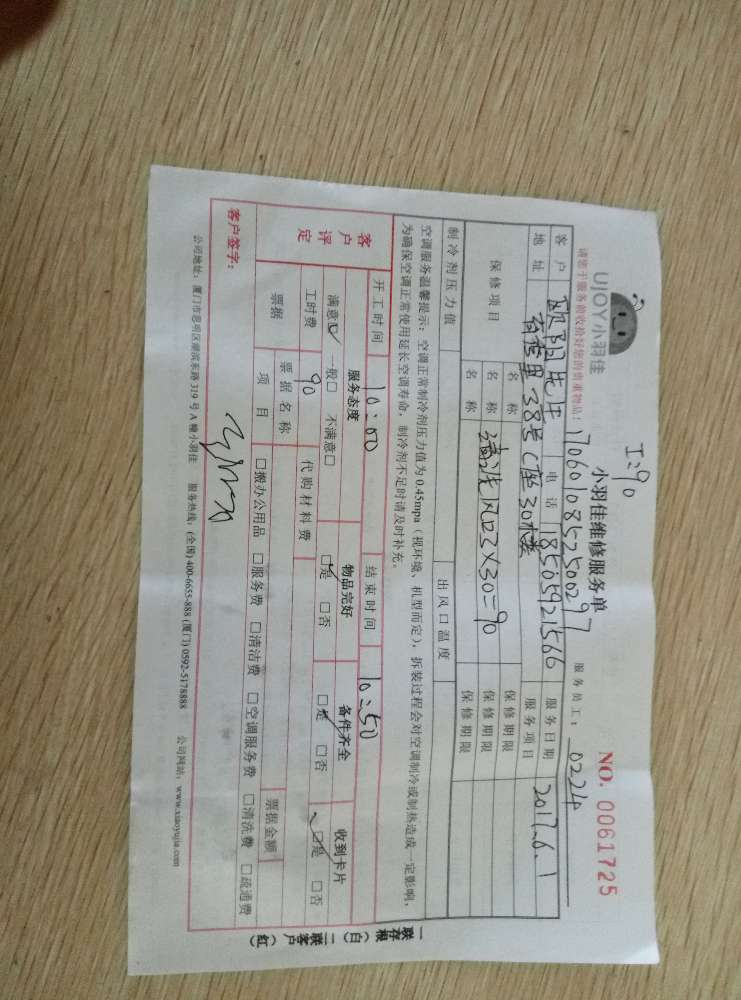 工:90
UJOY小羽佳
小羽佳维修服务单
NO. 0061725
请您于服务前收拾好您的贵重物品！
1706010852500297
服务员工：0224
客户 欧阳先生 电话 18505921566 服务日期 2017.6.1
地址 38号C座30 服务项目
保修项目 名称 保修期限
名称 清洗风口3×30=90 保修期限
名称 保修期限
制冷剂压力值 出风口温度
空调服务温馨提示：空调正常制冷剂压力值为 0.45mpa（视环境、机型而定），拆装过程会对空调制冷或制热造成一定影响，
为确保空调正常使用延长空调寿命，制冷剂不足时请及时补充。
开工时间 10:00 结束时间 10:50
客户评定 服务态度 物品完好 备件齐全 收到卡片
满意☑ 一般□ 不满意□ ☑是 □否 ☑是 □否 ☑是 □否
工时费 90 代购材料费
票据 票据名称 票据金额
项目 □搬办公用品 □服务费 □清洁费 □空调服务费 □清洗费 □疏通费
客户签字：
公司地址：厦门市思明区湖滨东路 319 号 A 幢小羽佳 服务热线：(全国) 400-6655-888 (厦门) 0592-5178888 公司网站：www.xiaoyujia.com
一联存根（白） 二联客户（红）